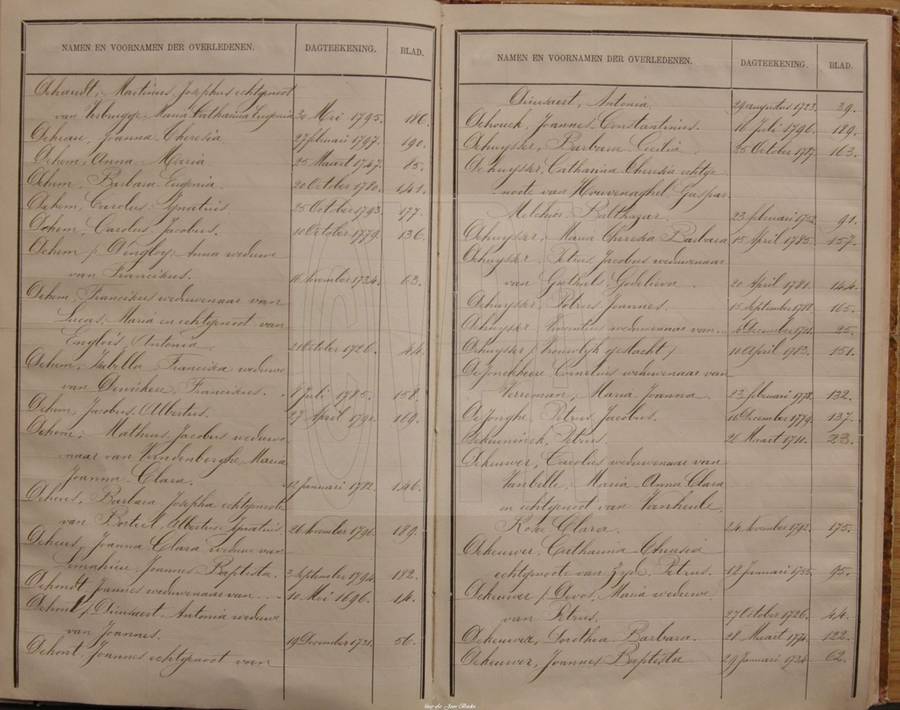 NAMEN EN VOORNAMEN DER OVERLEDENEN. DAGTEEKENING. BLAD.
Dehandt, Martinus Josephus echtgenoot
van Verbrugge Maria Catharina Eugenia 20 Mei 1795. 186.
Joanna Theresia 27 februari 1797. 190.
Dehem, Anna Maria 25 Maart 1747. 85.
Dehem, Barbara Eugenia. 20 October 1780. 141.
Dehem, Carolus Ignatius. 25 October 1793. 177.
Dehem, Carolus Jacobus. 10 October 1779. 136.
Dehem / Anna weduwe
van Franciskus. 16 November 1734. 63.
Dehem, Franciskus weduwenaar van
Lucas, Maria en echtgenoot van
Englois, Antonia October 1726. 44.
Dehem, Isabella Francisca weduwe
van Franciskus. Juli 1785. 158.
Dehem, Jacobus Albertus. 27 April 1791. 169.
Dehem, Matheus Jacobus weduwe
naar van Vandenberghe Maria
Joanna Clara. 12 januari 1782. 146.
Barbara Josepha echtgenoote
van Albertus Ignatius 26 November 1796. 189.
Joanna Clara weduwe van
Joannes Baptista. 3 September 1794. 182.
Dehondt Joannes weduwenaar van
10 Mei 1696. 14.
Dehont / Dünsaert Antonia weduwe
van Joannes. 19 December 1731. 56.
Dehont Joannes echtgenoot van
NAMEN EN VOORNAMEN DER OVERLEDENEN. DAGTEEKENING. BLAD.
Dünsaert, Antonia. 29 augustus 1723. 39.
Dehouck, Joannes Constantinus. 16 Juli 1796. 189.
Dehuysser, Barbara Cecilia. 25 October 1787. 163.
Dehuysser, Catharina Theresia echtge
noote van Houvenaghel Gaspar
Melchior Balthazar. 23 februari 1752. 91.
Dehuysser, Maria Theresia Barbara 15 April 1785. 157.
Dehuysser, Petrus Jacobus weduwenaar
van Godelieva. 20 April 1781. 144.
Dehuysser, Petrus Joannes. 15 September 1788. 165.
Dehuysser weduwenaar van 6 December 1711. 25.
Dehuysser / Vrouwelijk geslacht / 10 April 1783. 151.
Dejonckheere Cornelius weduwenaar van
Verreman, Maria Joanna 23 februari 1778. 132.
Dejonghe, Petrus Jacobus. 16 December 1779. 137.
Petrus. 26 Maart 1711. 23.
Dekeuwer, Carolus weduwenaar van
Vanbelle, Maria Anna Clara
en echtgenoot van Vanheule
Rosa Clara. 24 November 1792. 175.
Dekeuwer, Catharina Theresia
echtgenoote van Petrus. 12 Januari 1755. 95.
Dekeuwer / Devos, Maria weduwe
van Petrus. 27 October 1726. 44.
Dekeuwer, Dorothea Barbara. 28 Maart 1774. 122.
Dekeuwer, Joannes Baptista 29 Januari 1734 62.